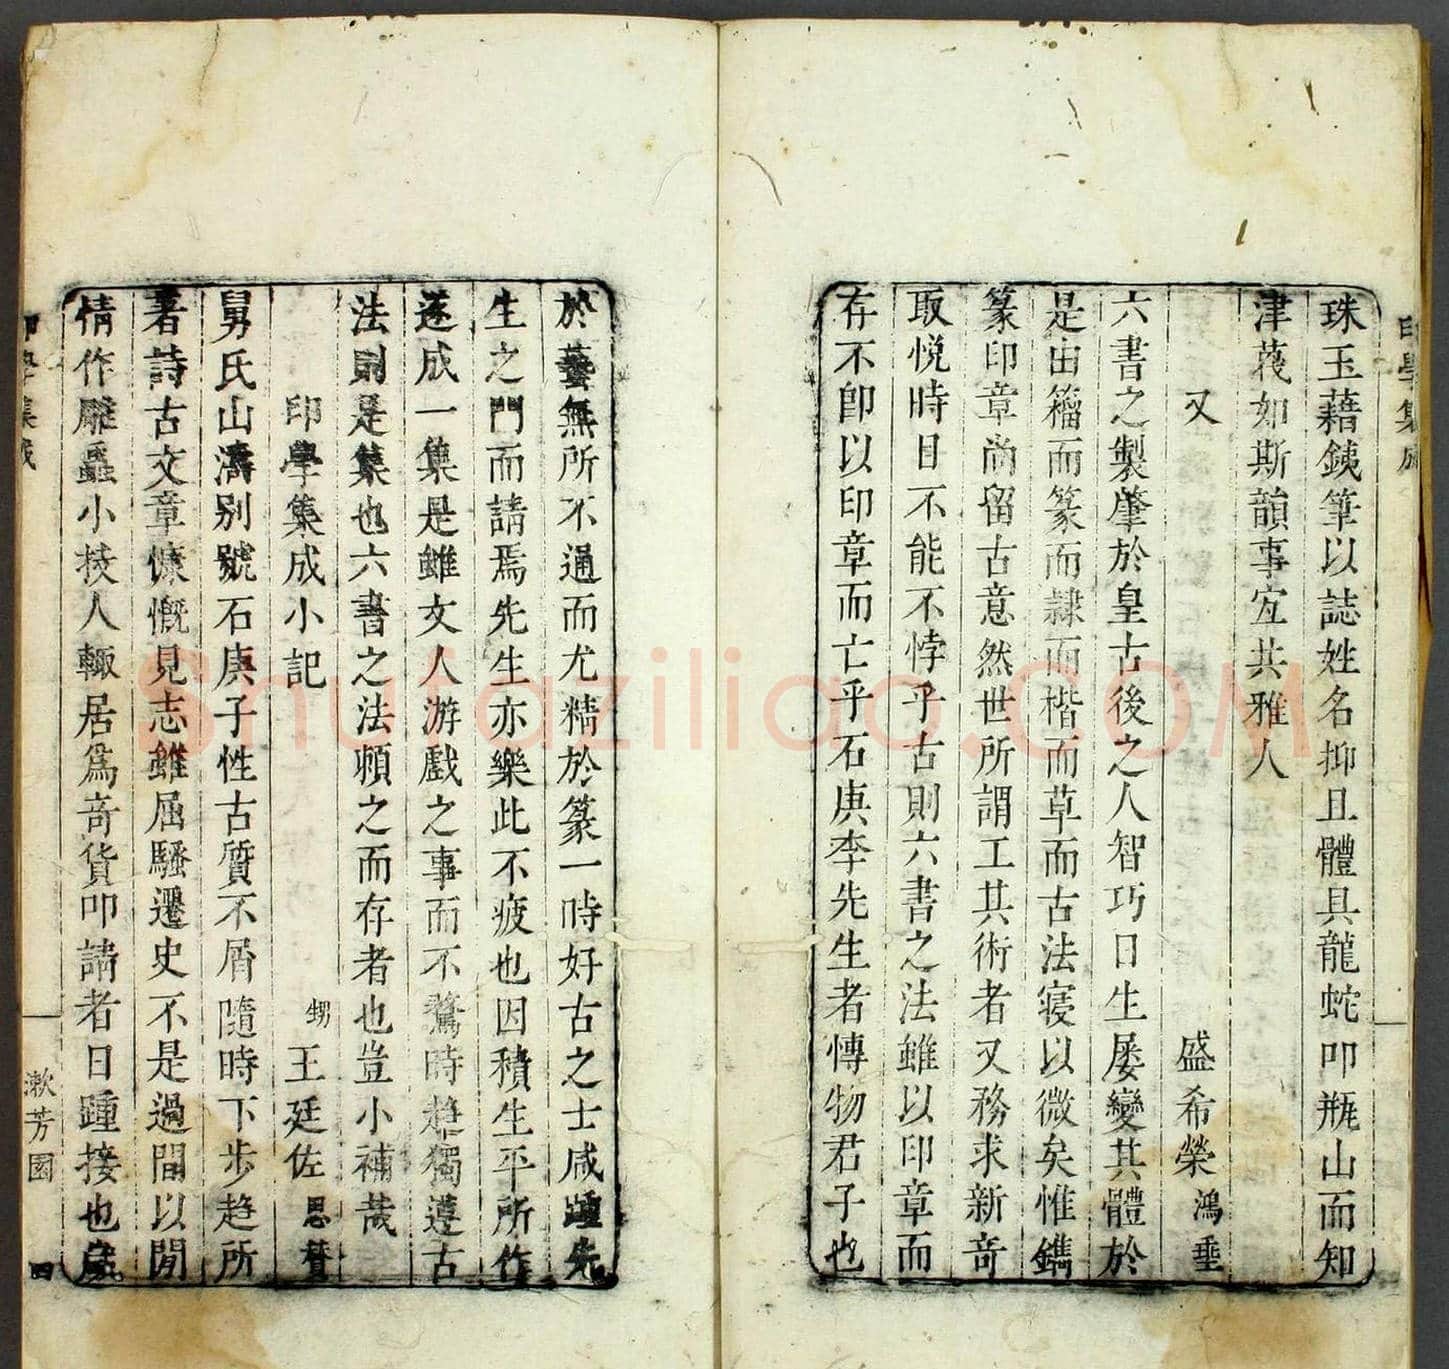 珠玉藉銕筆以誌姓名抑且體具龍蛇叩瓶山而知
津茷如斯韻事宐共雅人
又
盛希榮鴻垂
六書之製肇於皇古後之人智巧日生屡變其體於
是由籀而篆而隷而楷而草而古法寖以微矣惟鐫
篆印章尚留古意然世所謂工其術者又務求新竒
取悦時目不能不悖乎古則六書之法雖以印章而
存不卽以印章而亡乎石庚李先生者愽物君子也
於藝無所不通而尤精於篆一時好古之士咸踵先
生之門而請焉先生亦樂此不疲也因積生平所作
遂成一集是雖文人游戲之事而不驚時趍獨遵古
法則是集也六書之法頼之而存者也豈小補哉
印學集成小記
甥 王廷佐思贊
舅氏山濤别號石庚子性古質不屑隨時下步趍所
著詩古文章慷慨見志雖屈騷遷史不是過間以閒
情作雕蟲小技人輙居爲竒貨叩請者日踵接也歲
印學集
印學集成
漱芳園
四
shufaziliao.COM